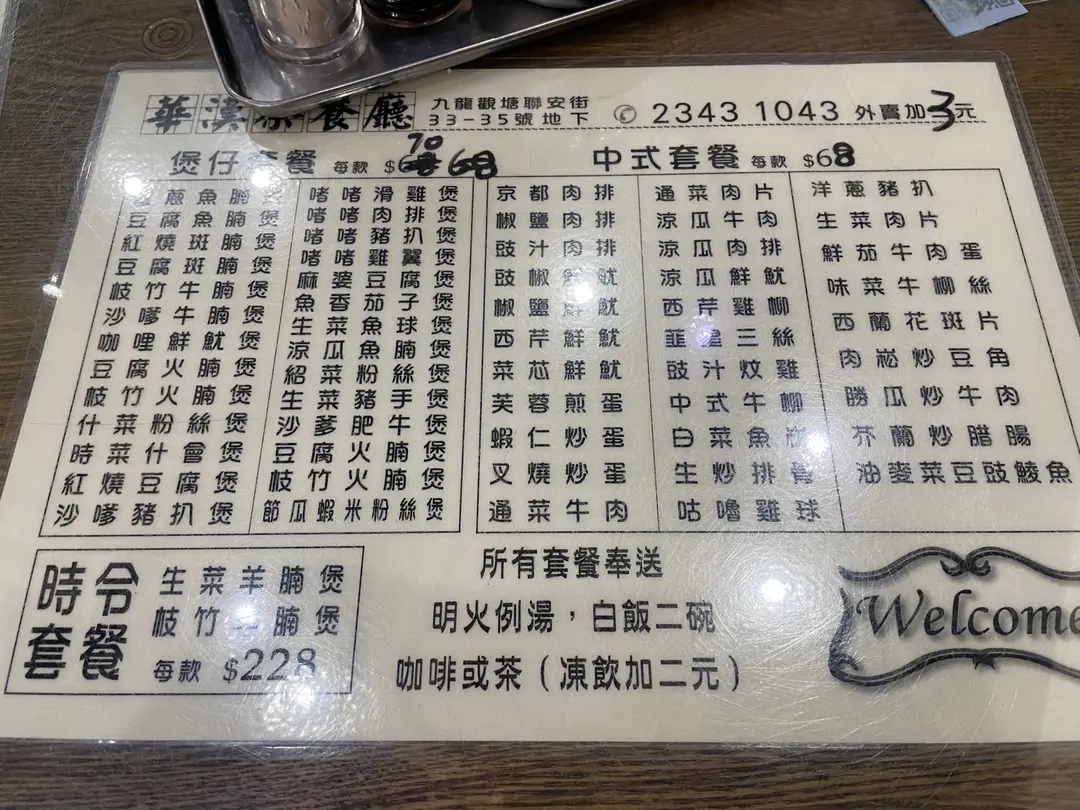 華漢茶餐廳
九龍觀塘聯安街
33-35號地下
2343 1043 外賣加3元
煲仔套餐 每款 $68 70 68
蔥魚腩煲
豆腐魚腩煲
紅燒斑腩煲
豆腐斑腩煲
枝竹牛腩煲
沙嗲牛腩煲
咖哩鮮魷煲
豆腐火腩煲
枝竹火腩煲
什菜粉絲煲
時菜什會煲
紅燒豆腐煲
沙嗲豬扒煲
啫啫滑雞煲
啫啫肉排煲
啫啫豬扒煲
啫啫雞翼煲
麻婆豆腐煲
魚香茄子煲
生菜魚球煲
涼瓜魚腩煲
紹菜粉絲煲
生菜豬手煲
沙爹肥牛煲
豆腐火腩煲
枝竹火腩煲
節瓜蝦米粉絲煲
中式套餐 每款 $68
京都肉排
椒鹽肉排
豉汁肉排
豉椒鮮魷
椒鹽鮮魷
西芹鮮魷
菜芯鮮魷
芙蓉煎蛋
蝦仁炒蛋
叉燒炒蛋
通菜牛肉
通菜肉片
涼瓜牛肉
涼瓜肉排
涼瓜鮮魷
西芹雞柳
韮三絲
豉汁炆雞
中式牛柳
白菜魚
生炒排骨
咕嚕雞球
洋蔥豬扒
生菜肉片
鮮茄牛肉蛋
味菜牛柳絲
西蘭花斑片
肉崧炒豆角
勝瓜炒牛肉
芥蘭炒腊腸
油麥菜豆豉鯪魚
時令
套餐
生菜羊腩煲
枝竹羊腩煲
每款 $228
所有套餐奉送
明火例湯，白飯二碗
咖啡或茶（凍飲加二元）
Welcome